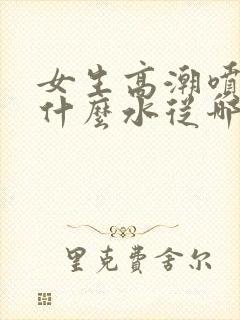 女生高潮喷
什麼水從哪
里克費舍尔